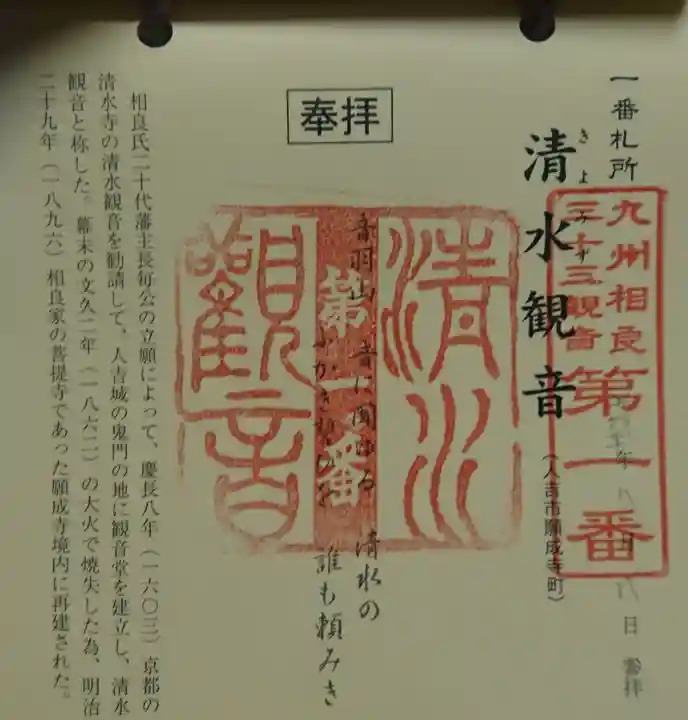 一番札所
清水観音
きよみず
(人吉市願成寺町)
九州相良
三十三観音
第一番
日 参拝
奉拝
清水
第一番
觀音
音羽山 音に聞ゆる 清水の
誰も頼みき
相良氏二十代藩主長毎公の立願によって、慶長八年(一六〇三)京都の
清水寺の清水観音を勧請して、人吉城の鬼門の地に観音堂を建立し、清水
観音と称した。幕末の文久二年(一八六二)の大火で焼失した為、明治
二十九年(一八九六)相良家の菩提寺であった願成寺境内に再建された。